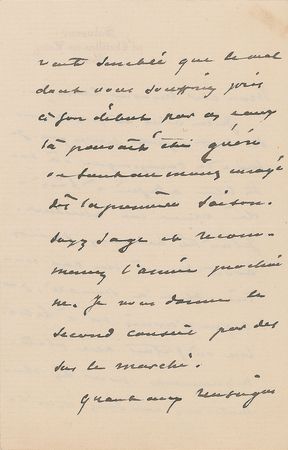 semblé que le mal
dont vous souffriez pris
à son début par ces eaux
là pouvait être guéri
ou tout au moins enrayé
dès la première saison.
Soyez sage et recom-
mencez l'année prochai
ne. Je vous donne le
second conseil par des
sus le marché.
Quant aux renseigne